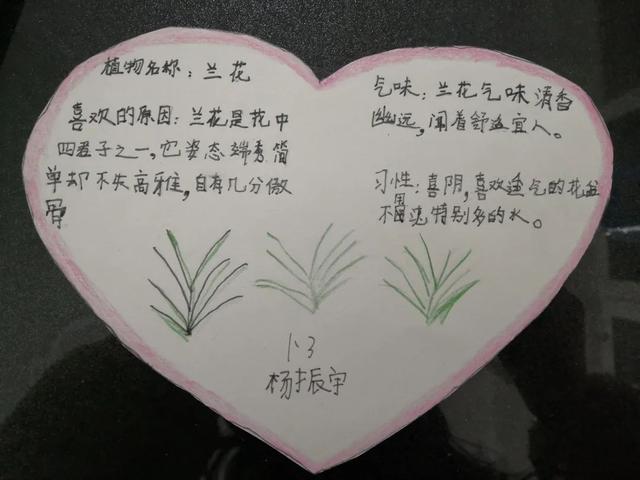 植物名称：兰花
喜欢的原因：兰花是花中
四君子之一，它姿态端秀简
单却不失高雅，自有几分傲
骨
气味：兰花气味清香
幽远，闻着舒适宜人。
习性：喜阴，喜欢透气的花盆
不用浇特别多的水。
1·3
杨振宇